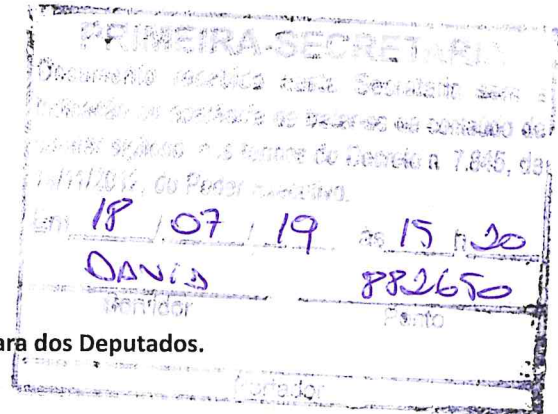 PRIMEIRA-SECRETARIA
Documento recebido nesta Secretaria sem a
indicação ou aparência de tratar-se de conteúdo de
caráter sigiloso, nos termos do Decreto n. 7.845, de
14/11/2012, do Poder Executivo.
Em 18 / 07 / 19 às 15 h 20
DAVID 882650
Servidor Ponto
ara dos Deputados.
Portador